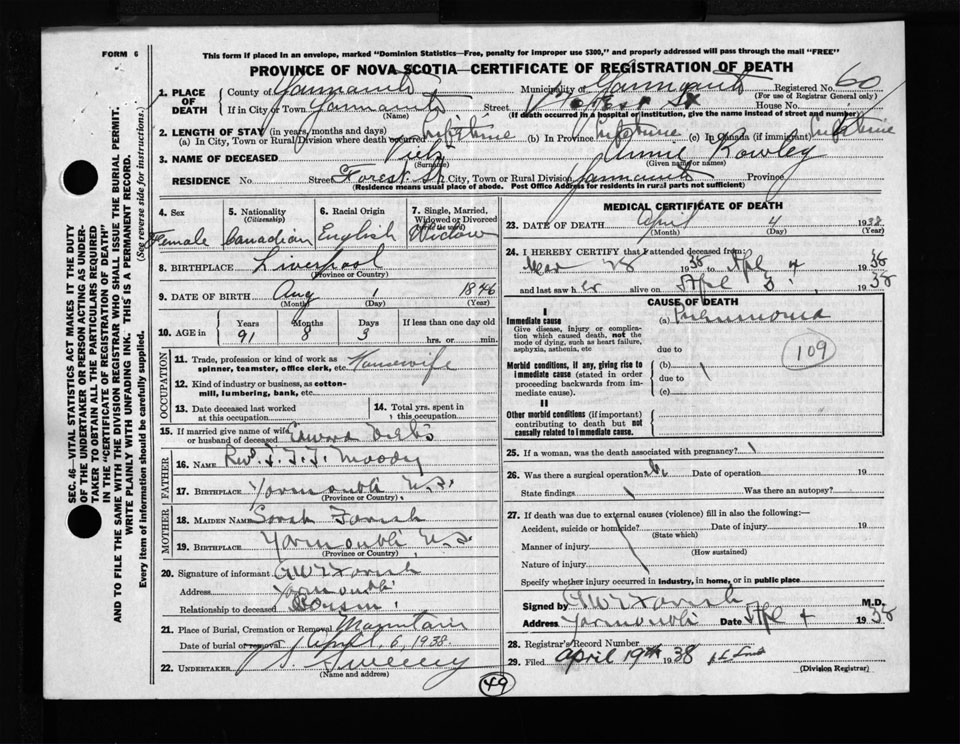 FORM 6
This form if placed in an envelope, marked "Dominion Statistics—Free, penalty for improper use $300," and properly addressed will pass through the mail "FREE"
PROVINCE OF NOVA SCOTIA—CERTIFICATE OF REGISTRATION OF DEATH
SEC. 46—VITAL STATISTICS ACT MAKES IT THE DUTY
OF THE UNDERTAKER OR PERSON ACTING AS UNDER-
TAKER TO OBTAIN ALL THE PARTICULARS REQUIRED
IN THE "CERTIFICATE OF REGISTRATION OF DEATH"
AND TO FILE THE SAME WITH THE DIVISION REGISTRAR WHO SHALL ISSUE THE BURIAL PERMIT.
WRITE PLAINLY WITH UNFADING INK. THIS IS A PERMANENT RECORD.
Every item of information should be carefully supplied. (See reverse side for instructions.)
1. PLACE OF DEATH
County of Yarmouth Municipality of Yarmouth Registered No. 60
(For use of Registrar General only)
If in City or Town Yarmouth Street Forest St House No.
(Name) (If death occurred in a hospital or institution, give the name instead of street and number)
2. LENGTH OF STAY (in years, months and days)
(a) In City, Town or Rural Division where death occurred Lifetime (b) In Province Lifetime (c) In Canada (if immigrant) Lifetime
3. NAME OF DECEASED Annie Rowley
(Surname) (Given name or names)
RESIDENCE No. Street Forest St City, Town or Rural Division Yarmouth Province
(Residence means usual place of abode. Post Office Address for residents in rural parts not sufficient)
4. Sex Female
5. Nationality (Citizenship) Canadian
6. Racial Origin English
7. Single, Married, Widowed or Divorced (write the word) Widow
8. BIRTHPLACE Liverpool
(Province or Country)
9. DATE OF BIRTH Aug 1 1846
(Month) (Day) (Year)
10. AGE in Years Months Days If less than one day old
91 8 3 hrs. or min.
OCCUPATION
11. Trade, profession or kind of work as spinner, teamster, office clerk, etc. Housewife
12. Kind of industry or business, as cotton-mill, lumbering, bank, etc.
13. Date deceased last worked at this occupation
14. Total yrs. spent in this occupation
15. If married give name of wife or husband of deceased Edward
FATHER
16. NAME Rev. J. T. T. Moody
17. BIRTHPLACE Yarmouth N.S.
(Province or Country)
MOTHER
18. MAIDEN NAME Sarah Farish
19. BIRTHPLACE Yarmouth N.S.
(Province or Country)
20. Signature of informant G W T Farish
Address Yarmouth
Relationship to deceased Cousin
21. Place of Burial, Cremation or Removal Mountain
Date of burial or removal April 6, 1938.
22. UNDERTAKER Sweeny
(Name and address)
MEDICAL CERTIFICATE OF DEATH
23. DATE OF DEATH April 4 1938
(Month) (Day) (Year)
24. I HEREBY CERTIFY that I attended deceased from:
Mar 28 1938 to Apl 4, 1938
and last saw her alive on Apl 3, 1938
CAUSE OF DEATH
I
Immediate cause (a) Pneumonia
Give disease, injury or complication which caused death, not the mode of dying, such as heart failure, asphyxia, asthenia, etc due to
109
Morbid conditions, if any, giving rise to immediate cause (stated in order proceeding backwards from immediate cause). (b)
due to
(c)
II
Other morbid conditions (if important) contributing to death but not causally related to immediate cause.
25. If a woman, was the death associated with pregnancy?
26. Was there a surgical operation? No Date of operation 19
State findings Was there an autopsy?
27. If death was due to external causes (violence) fill in also the following:—
Accident, suicide or homicide? Date of injury 19
(State which)
Manner of injury
(How sustained)
Nature of injury
Specify whether injury occurred in industry, in home, or in public place
Signed by G W T Farish M.D.
Address Yarmouth Date Apl 4 1938
28. Registrar's Record Number
29. Filed April 19th 1938
(Division Registrar)
49